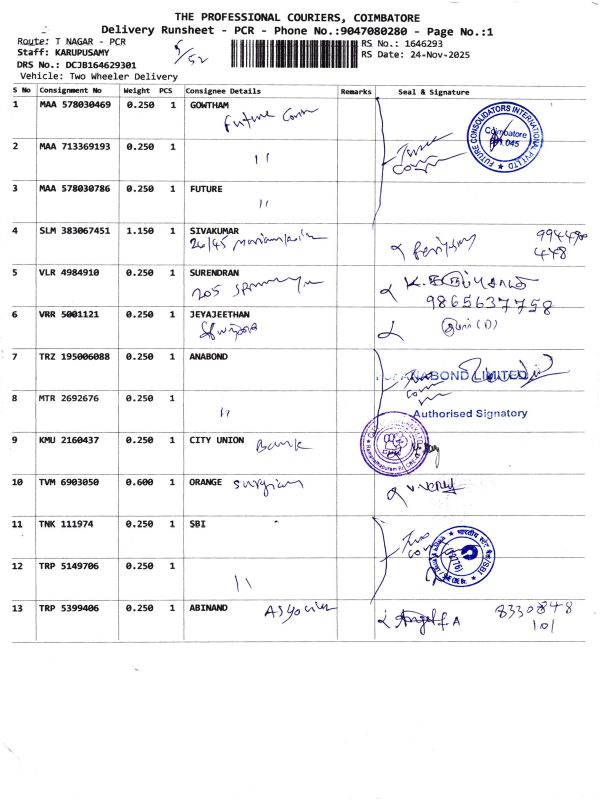 THE PROFESSIONAL COURIERS, COIMBATORE
Delivery Runsheet - PCR - Phone No.:9047080280 - Page No.:1
Route: T NAGAR - PCR
Staff: KARUPUSAMY
DRS No.: DCJB164629301
Vehicle: Two Wheeler Delivery
5/52
RS No.: 1646293
RS Date: 24-Nov-2025
S No Consignment No Weight PCS Consignee Details Remarks Seal & Signature
1 MAA 578030469 0.250 1 GOWTHAM
Future Com
2 MAA 713369193 0.250 1
11
FUTURE CONSOLIDATORS INTERNATIONAL PVT LTD
Coimbatore
045
3 MAA 578030786 0.250 1 FUTURE
11
4 SLM 383067451 1.150 1 SIVAKUMAR
26/45
5 VLR 4984910 0.250 1 SURENDRAN
205
K.கருப்புசாமி
9865637758
6 VRR 5001121 0.250 1 JEYAJEETHAN
7 TRZ 195006088 0.250 1 ANABOND
ANABOND LIMITED
8 MTR 2692676 0.250 1
11
Authorised Signatory
9 KMU 2160437 0.250 1 CITY UNION Bank
10 TVM 6903050 0.600 1 ORANGE
11 TNK 111974 0.250 1 SBI
12 TRP 5149706 0.250 1
11
13 TRP 5399406 0.250 1 ABINAND
8330848
101